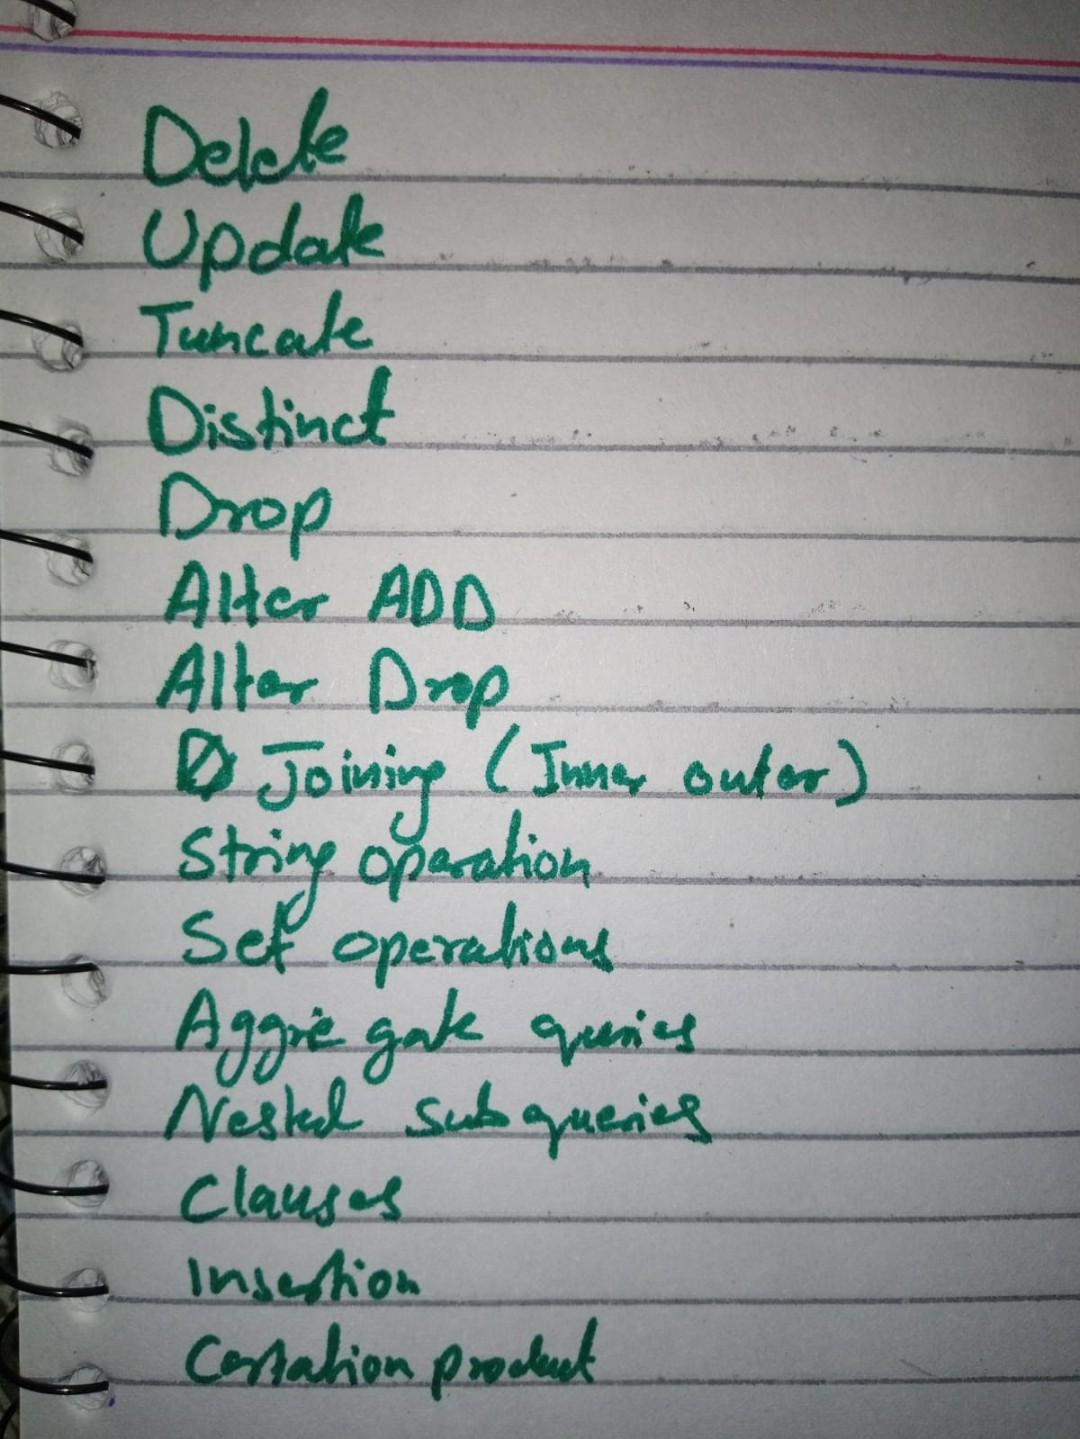 Delete
Update
Tuncate
Distinct
Drop
Alter ADD
Alter Drop
Joining (Inner outer)
String operation
Set operations
Aggre gate queries
Nested sub queries
Clauses
Insertion
Cartation product